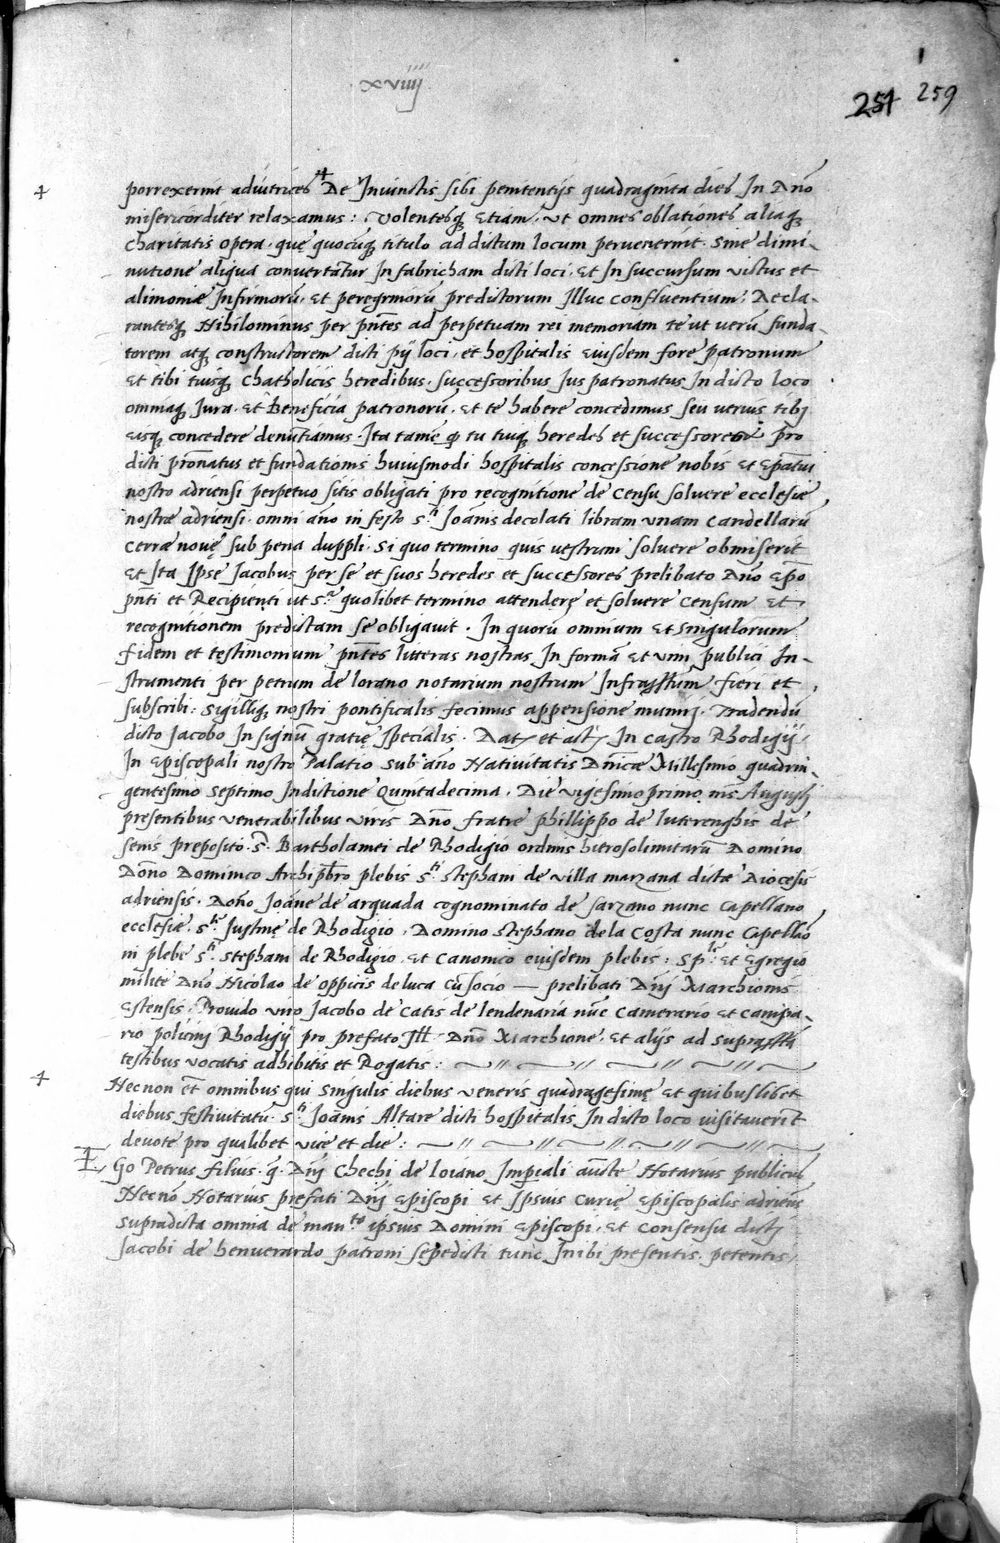 xviiij
254 259
porrexerint adiutrices ⁴ De Iniunctis sibi penitentijs quadraginta dies In Dño
misericorditer relaxamus: Volentesq₃ Etiam, Vt omnes oblationes aliaq₃
Charitatis opera, quę quocūq₃ titulo ad dictum locum pervenerint. Sine dimi-
nutione aliqua convertātur In fabricham dicti loci, Et In succursum victus et
alimoniæ Infirmorū, Et peregrinorū predictorum Illuc confluentium, Decla-
rantesq₃ Nihilominus per pñtes ad perpetuam rei memoriam te ut verū funda-
torem atq₃ constructorem dicti pij loci, et hospitalis eiusdem fore patronum
Et tibi tuisq₃ Chatholicis heredibus, successoribus Jus patronatus In dicto loco
omniaq₃ Jura, Et Beneficia patronorū, Et te habere concedimus seu verius tibj
eisq₃ concedere denūtiamus. Ita tamē ꝙ tu tuiq₃ heredes et successores pro
dicti prōnatus et fundationis huiusmodi hospitalis concessione nobis et Epātui
nostro adriensi perpetuo sitis obligati pro recognitione de Censu solvere ecclesiæ
nostræ adriensi, omni año in festo s.ᵗⁱ Ioānis decolati libram unam Candellarū
Cerræ novę sub pena duppli. Si quo termino quis vestrum solvere obmiserit
Et Ita Ipse Jacobus per se et suos heredes et successores prelibato Dño Epō
pñti et Recipienti ut s.ᵃ quolibet termino attendere et solvere Censum Et
recognitionem predictam se obligavit. In quorū omnium Et singulorum
fidem et testimonium pñtes litteras nostras In formā Et vim publici In-
strumenti per petrum de lorano notarium nostrum Infrasstum fieri et
subscribi: Sigilliq₃ nostri pontificalis fecimus appensione munirj. Tradendū
dicto Jacobo In signū gratię specialis. Datȝ et actȝ In Castro Rhodigij
In Episcopali nostro Palatio sub año Nativitatis Dñicæ Millesimo quadrin-
gentesimo septimo Inditione Quintadecima, Die vigesimoprimo, mēs Augusti
presentibus venerabilibus viris Dño fratre phillippo de luterenghis de
senis preposito s. Bartholamei de Rhodigio ordinis hierosolimitarū Domino
Doño Dominico Archipbr̄o plebis s.ᵗⁱ stephani de villa marzana dictæ Diocesis
adriensis. Doño Ioāne de arquada cognominato de sarzano nunc Capellano
ecclesiæ, s.ᵗᵉ Justinę de Rhodigio, Domino Stephano dela Costa nunc Capellāo
in plebe s.ᵗⁱ stephani de Rhodigio, Et Canonico eiusdem plebis; Sp.ˡᵉ Et Egregio
milite Dño Nicolao de oppicis de luca cū socio — prelibati Dñj Marchionis
Estensis, Provido viro Jacobo de Catis de lendenaria nūc Camerario Et Campa-
rio policinj Rhodigij pro prefato Ill. Dño Marchione, Et alijs ad suprassta
testibus vocatis adhibitis et Rogatis: ~ // ~ // ~ // ~
4 Necnon Et omnibus qui singulis diebus veneris quadragesimę Et quibuslibet
diebus festivitatū s.ᵗⁱ Ioānis Altare dicti hospitalis In dicto loco visitaverīt
devote pro qualibet vice et die: ~ // ~ // ~ // ~ // ~
EGo Petrus filius q̄. Dñj Chechi de loiano Imperiali aucte Notarius publicus
Necnō Notarius prefati Dñj Episcopi Et Ipsius Curię Episcopalis adrieñs
supradicta omnia de man.ᵗᵒ ipsius Domini Episcopi, Et Consensu dictj
Jacobi de benverardo patroni sepedicti tunc Inibi presentis, petentis,